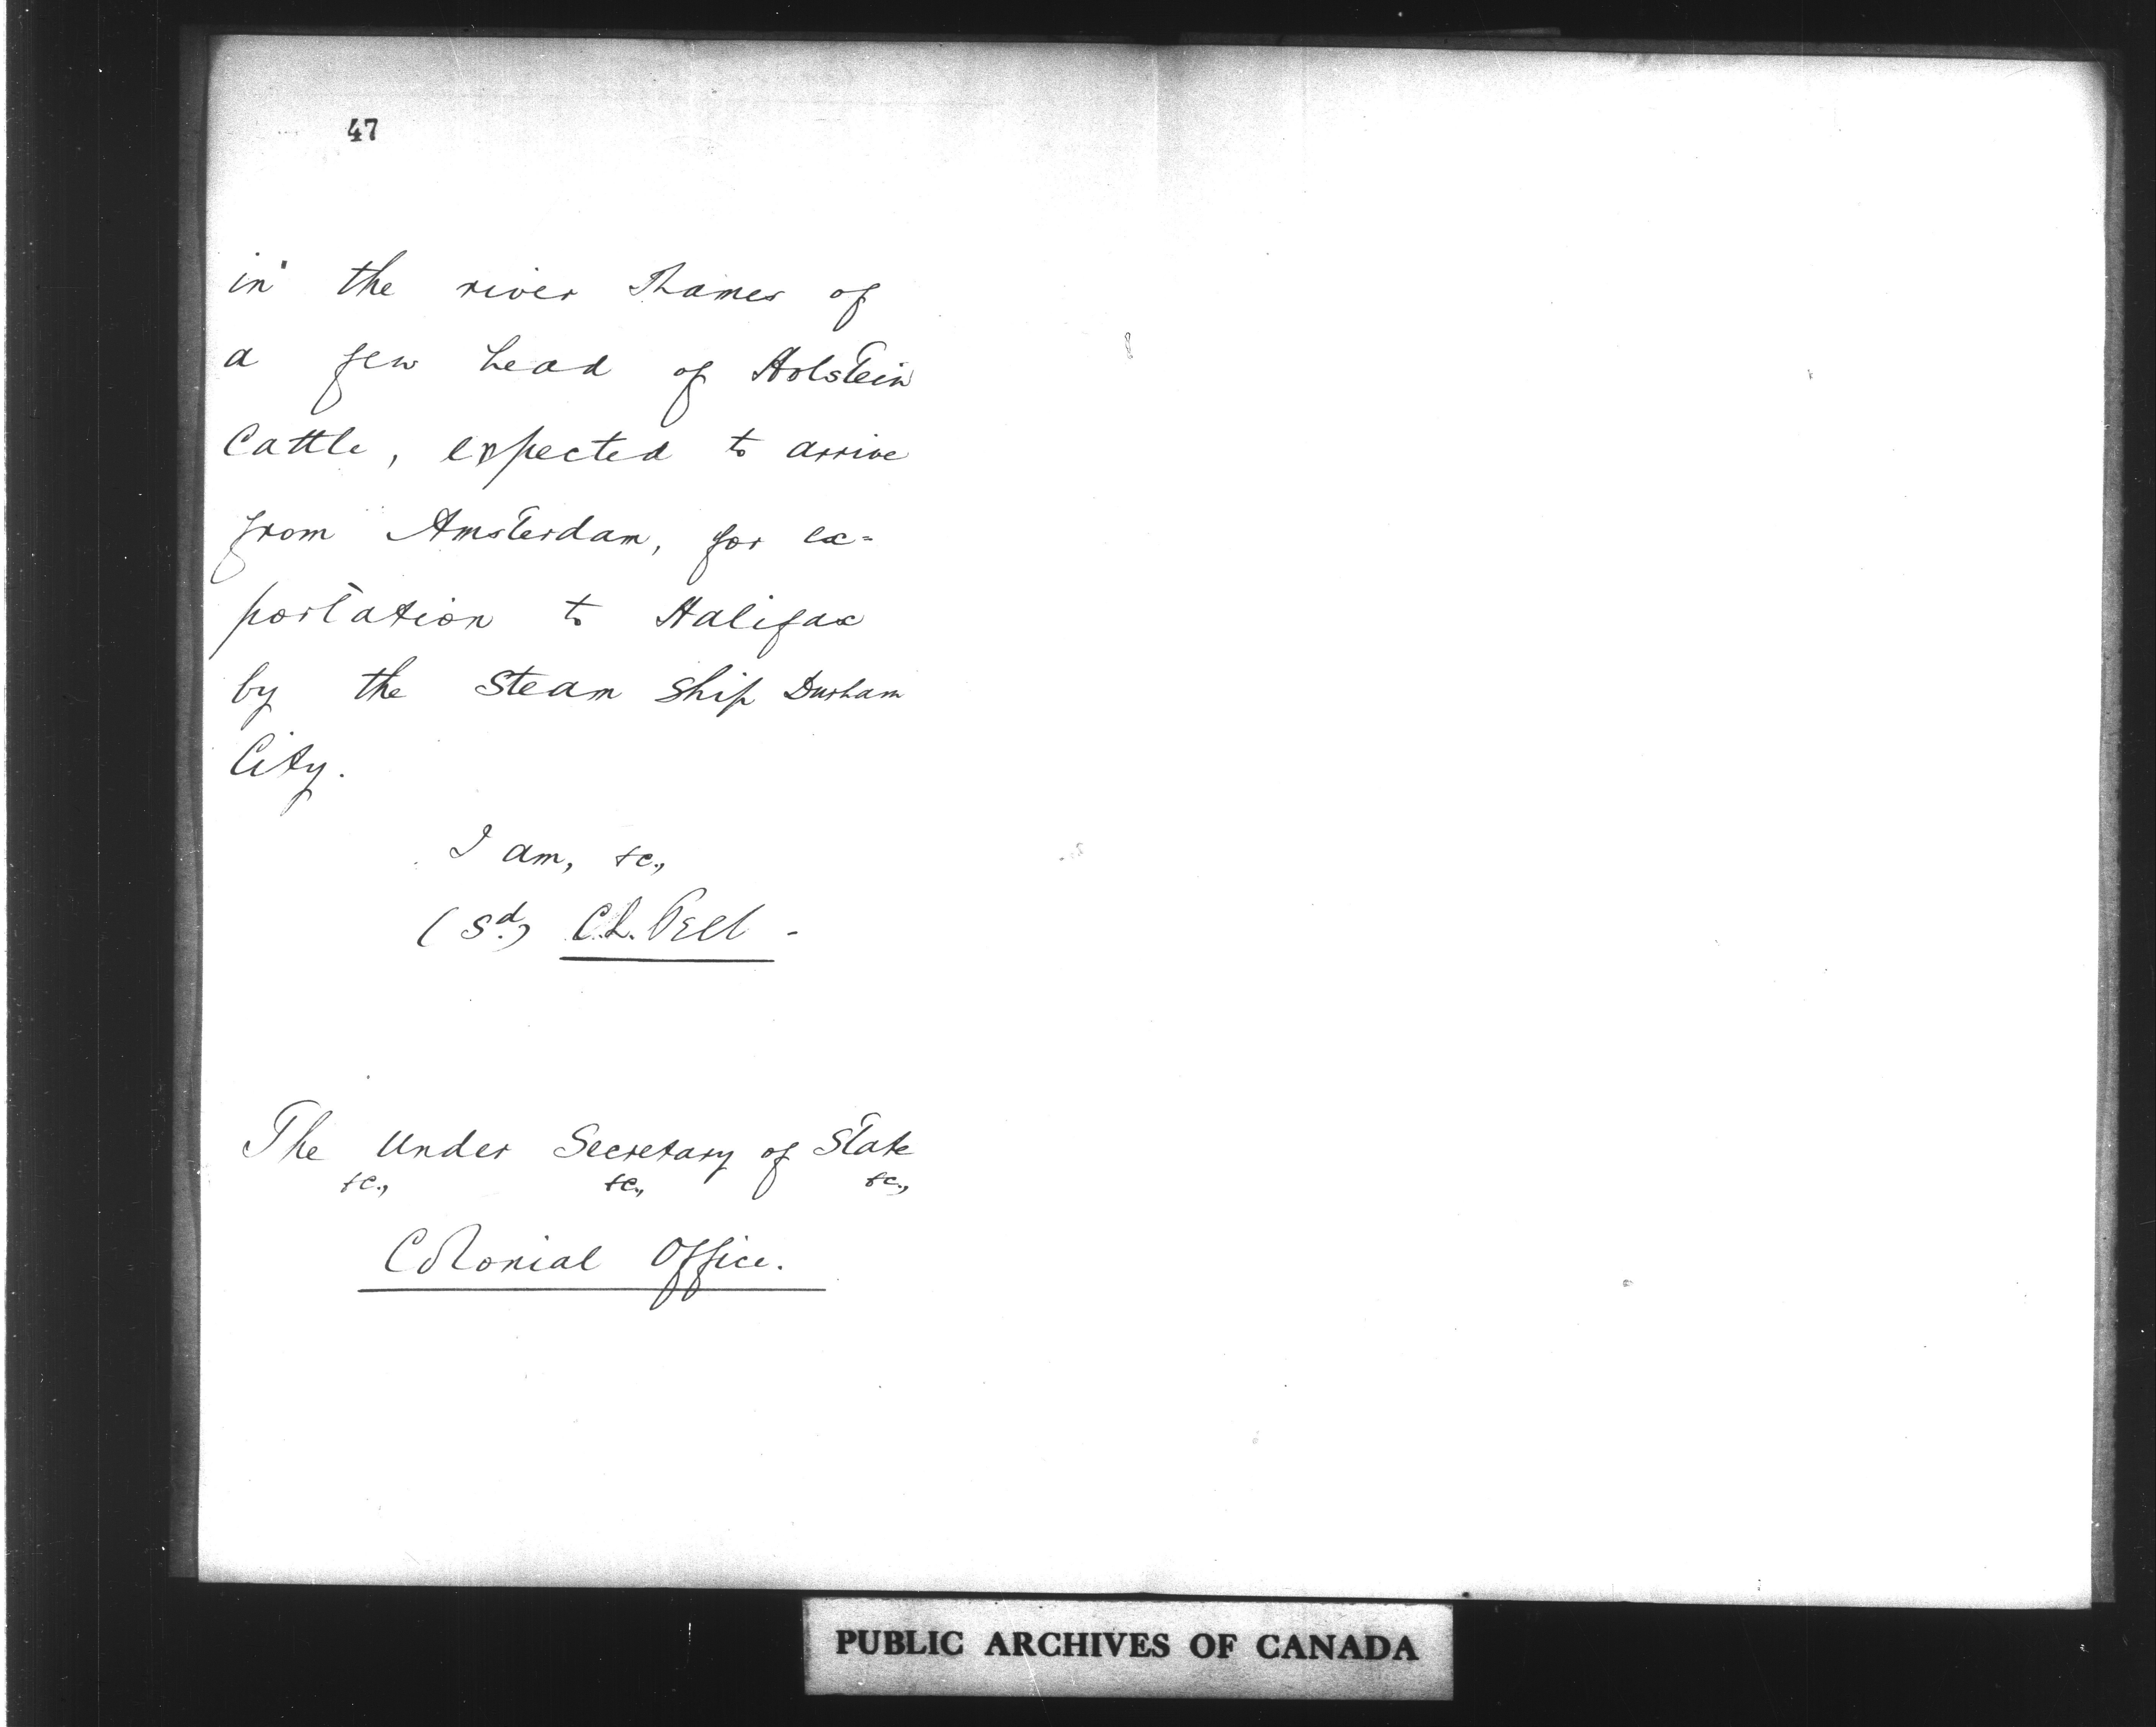 47
in the river Thames of
a few head of Holstein
Cattle, expected to arrive
from Amsterdam, for ex=
portation to Halifax
by the Steam Ship Durham
City.
I am, &c.,
(Sd.) C.L. Peel -
The Under Secretary of State
&c., &c., &c.,
Colonial Office.
PUBLIC ARCHIVES OF CANADA